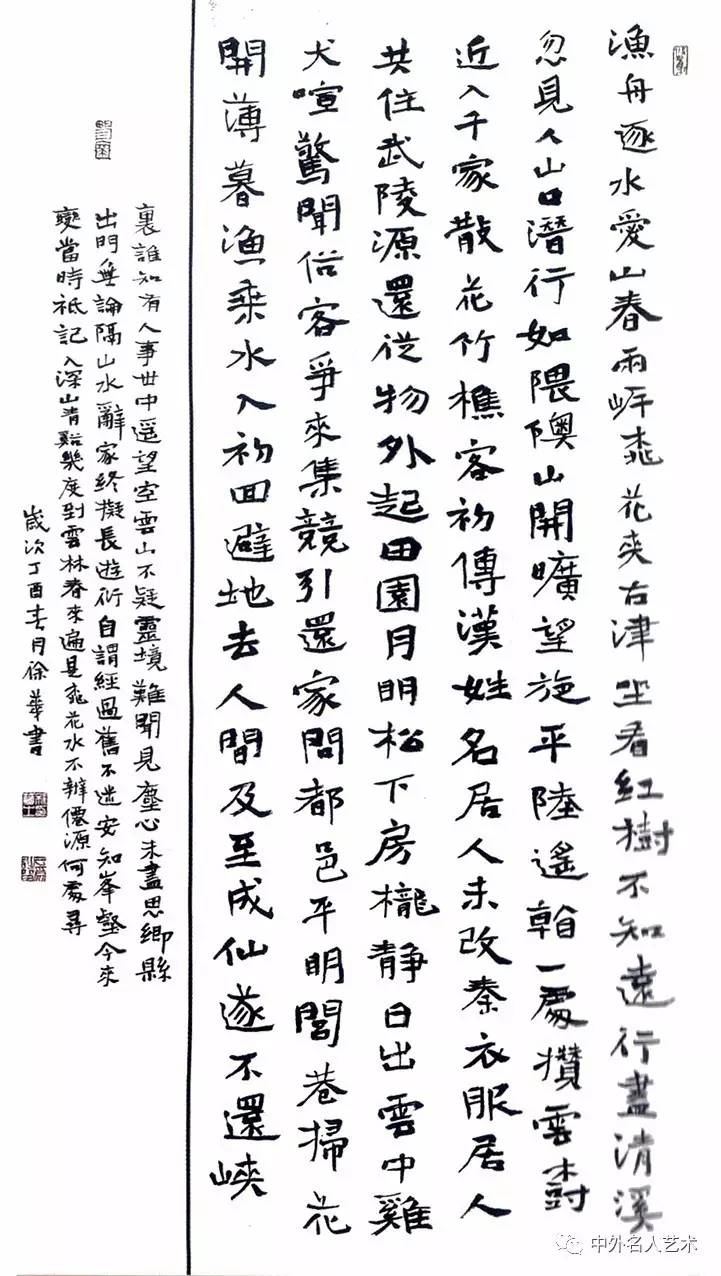 漁舟逐水愛山春雨岸桃花夾右津坐看紅樹不知遠行盡清溪
忽見人山口潛行如隈隩山開曠望旋平陸遙翰一處攢雲樹
近入千家散花竹樵客初傳漢姓名居人未改秦衣服居人
共住武陵源還從物外起田園月明松下房櫳靜日出雲中雞
犬喧驚聞俗客爭來集競引還家問都邑平明閭巷掃花
開薄暮漁乘水入初回避地去人間及至成仙遂不還峽
裏誰知有人事世中遥望空雲山不疑靈境難聞見塵心未盡思鄉縣
出門無論隔山水辭家終擬長遊衍自謂經過舊不迷安知峯壑今來
變當時祇記入深山青谿幾度到雲林春來遍是桃花水不辨僊源何處尋
歲次丁酉春月徐華書
中外名人艺术